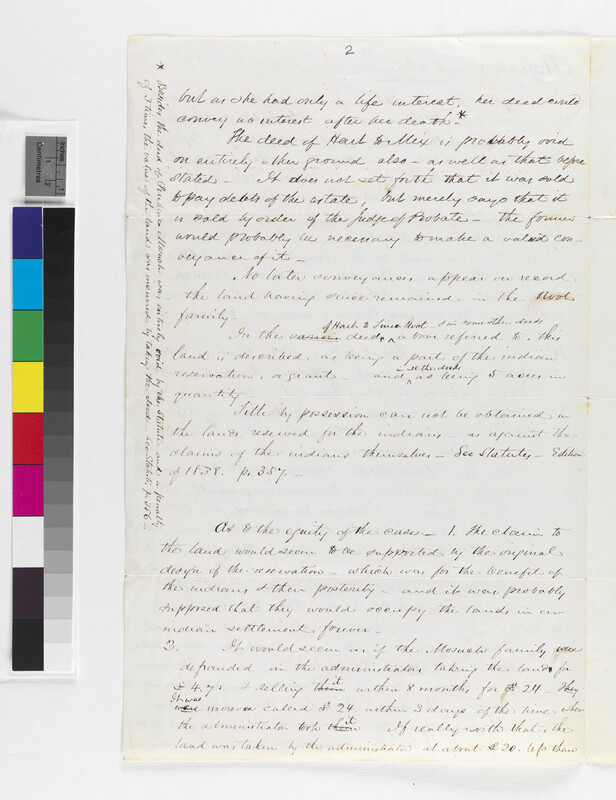 2
but as she had only a life interest, her deed could
convey no interest after her death - *
The deed of Hart to Mix is probably void
on entirely other ground also - as well as that before
stated - It does not set forth that it was sold
to pay debts of the estate, but merely says that it
is sold by order of the Judge of Probate - the former
would probably be necessary to make a valid con-
veyance of it -
No later conveyances appear on record
- the land having since remained in the
family -
of Hart to & in some other deeds
In the various deeds above referred to, this
land is described, as being a part of the indian
in all the deeds
reservation, or grant - and as being 5 acres in
quantity
Title by possession can not be obtained in
the lands reserved for the indians - as against the
claims of the indians themselves - See Statutes - Edition
of 1838. p. 357 -
As to the equity of the case - 1. The claim to
the land would seem to be supported by the original
design of the reservation - which was for the benefit of
the indians & their posterity - and it was probably
supposed that they would occupy the lands in an
indian settlement forever -
2. It would seem as if the family were
defrauded in the administrator taking the land for
£ 4.7s. & selling it within 8 months for £ 24 - They
It was
were moreover valued £ 24 within 3 days of the time when
the administrator took it - If really worth that, the
land was taken by the administrator at about £ 20. less than
* Besides the deed of was entirely void by the Statute and a penalty
of 3 times the value of the land was incurred by taking the deed - See Statute, p. 356 -
Inches
Centimetres